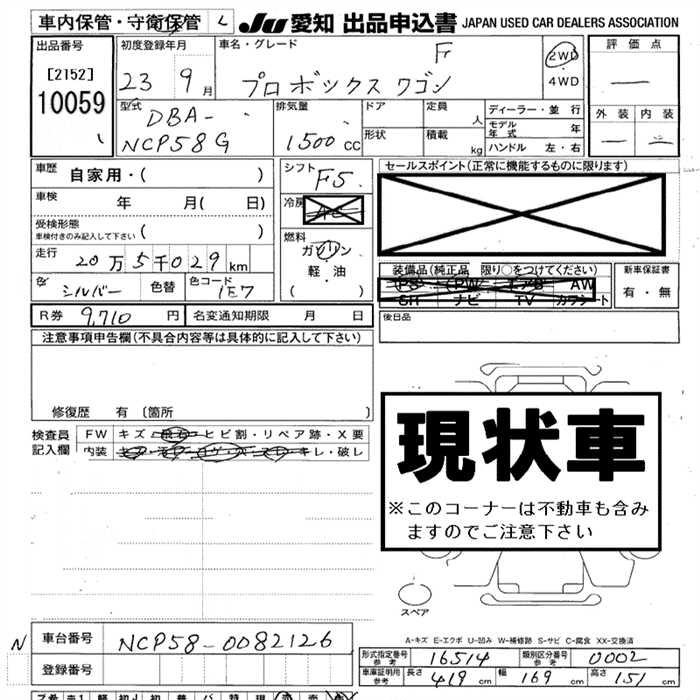 車内保管・守衛保管 し JU 愛知 出品申込書 JAPAN USED CAR DEALERS ASSOCIATION
出品番号 初度登録年月 車名・グレード F 2WD 評価点
[2152] 23 9月 プロボックスワゴン 4WD —
10059 型式 排気量 ドア 定員 人 ディーラー・並行 外装 内装
DBA- NCP58G 1500cc 形状 積載 kg モデル年式 年 — 二
ハンドル 左・右
車歴 自家用・( ) シフト F5 セールスポイント(正常に機能するものに限ります)
車検 年 月( 日) 冷房 AC
受検形態 車検付きのみ記入して下さい ( ) 燃料 ガソリン
走行 20万5千029km 軽・油 装備品(純正品 限り○をつけてください) 新車保証書
色 シルバー 色替 色コード 1E7 ( ) PS PW エアB AW 有・無
SH ナビ TV カワシート
R券 9,710円 名変通知期限 月 日 後日品
注意事項申告欄(不具合内容等は具体的に記入して下さい)
修復歴 有〔箇所
検査員 FW キズ・飛石・ヒビ割・リペア跡・X要
記入欄 内装
現状車
※このコーナーは不動車も含み
ますのでご注意下さい
スペア
A-キズ E-エクボ U-凹み W-補修跡 S-サビ C-腐食 XX-交換済
N 車台番号 NCP58-0082126
登録番号
形式指定番号 参考 16514 類別区分番号 参考 0002
車庫証明用 参考 長さ 419cm 幅 169cm 高さ 151cm